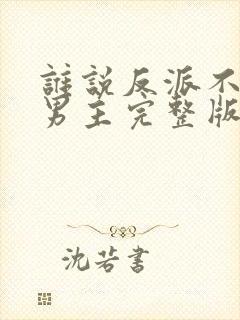 誰說反派不
男主完整版
沈若書